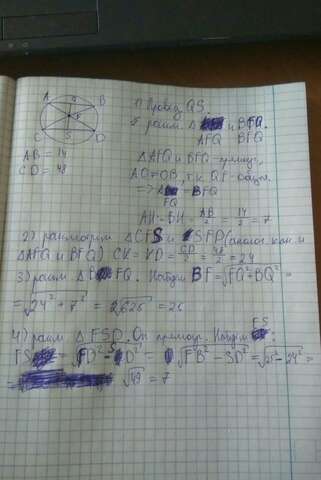 A Q B
F
C S D
AB = 14
CD = 48
1) Провед QS.
2 рассм. Δ AFQ и BFQ.
ΔAFQ и BFQ - прямоуг,
AQ = QB, т.к QF - общая
=> AFQ = BFQ
AH = BH = AB/2 = 14/2 = 7
2) рассмотрим ΔCFS и SFD (аналог. как и
ΔAFQ и BFQ) CK = KD = CD/2 = 48/2 = 24
3) рассм Δ BFQ. Найдём BF = √FQ² + BQ² =
= √24² + 7² = √625 = 25
4) расм Δ FSD. Он прямоуг. Найдём FS.
FS = √FD² - SD² = √FB² - SD² = √25² - 24² =
= √49 = 7